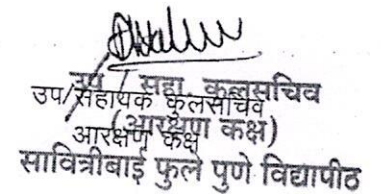 उप / सहा. कुलसचिव
उप/सहायक कुलसचिव
(आरक्षण कक्ष)
आरक्षण कक्ष
सावित्रीबाई फुले पुणे विद्यापीठ